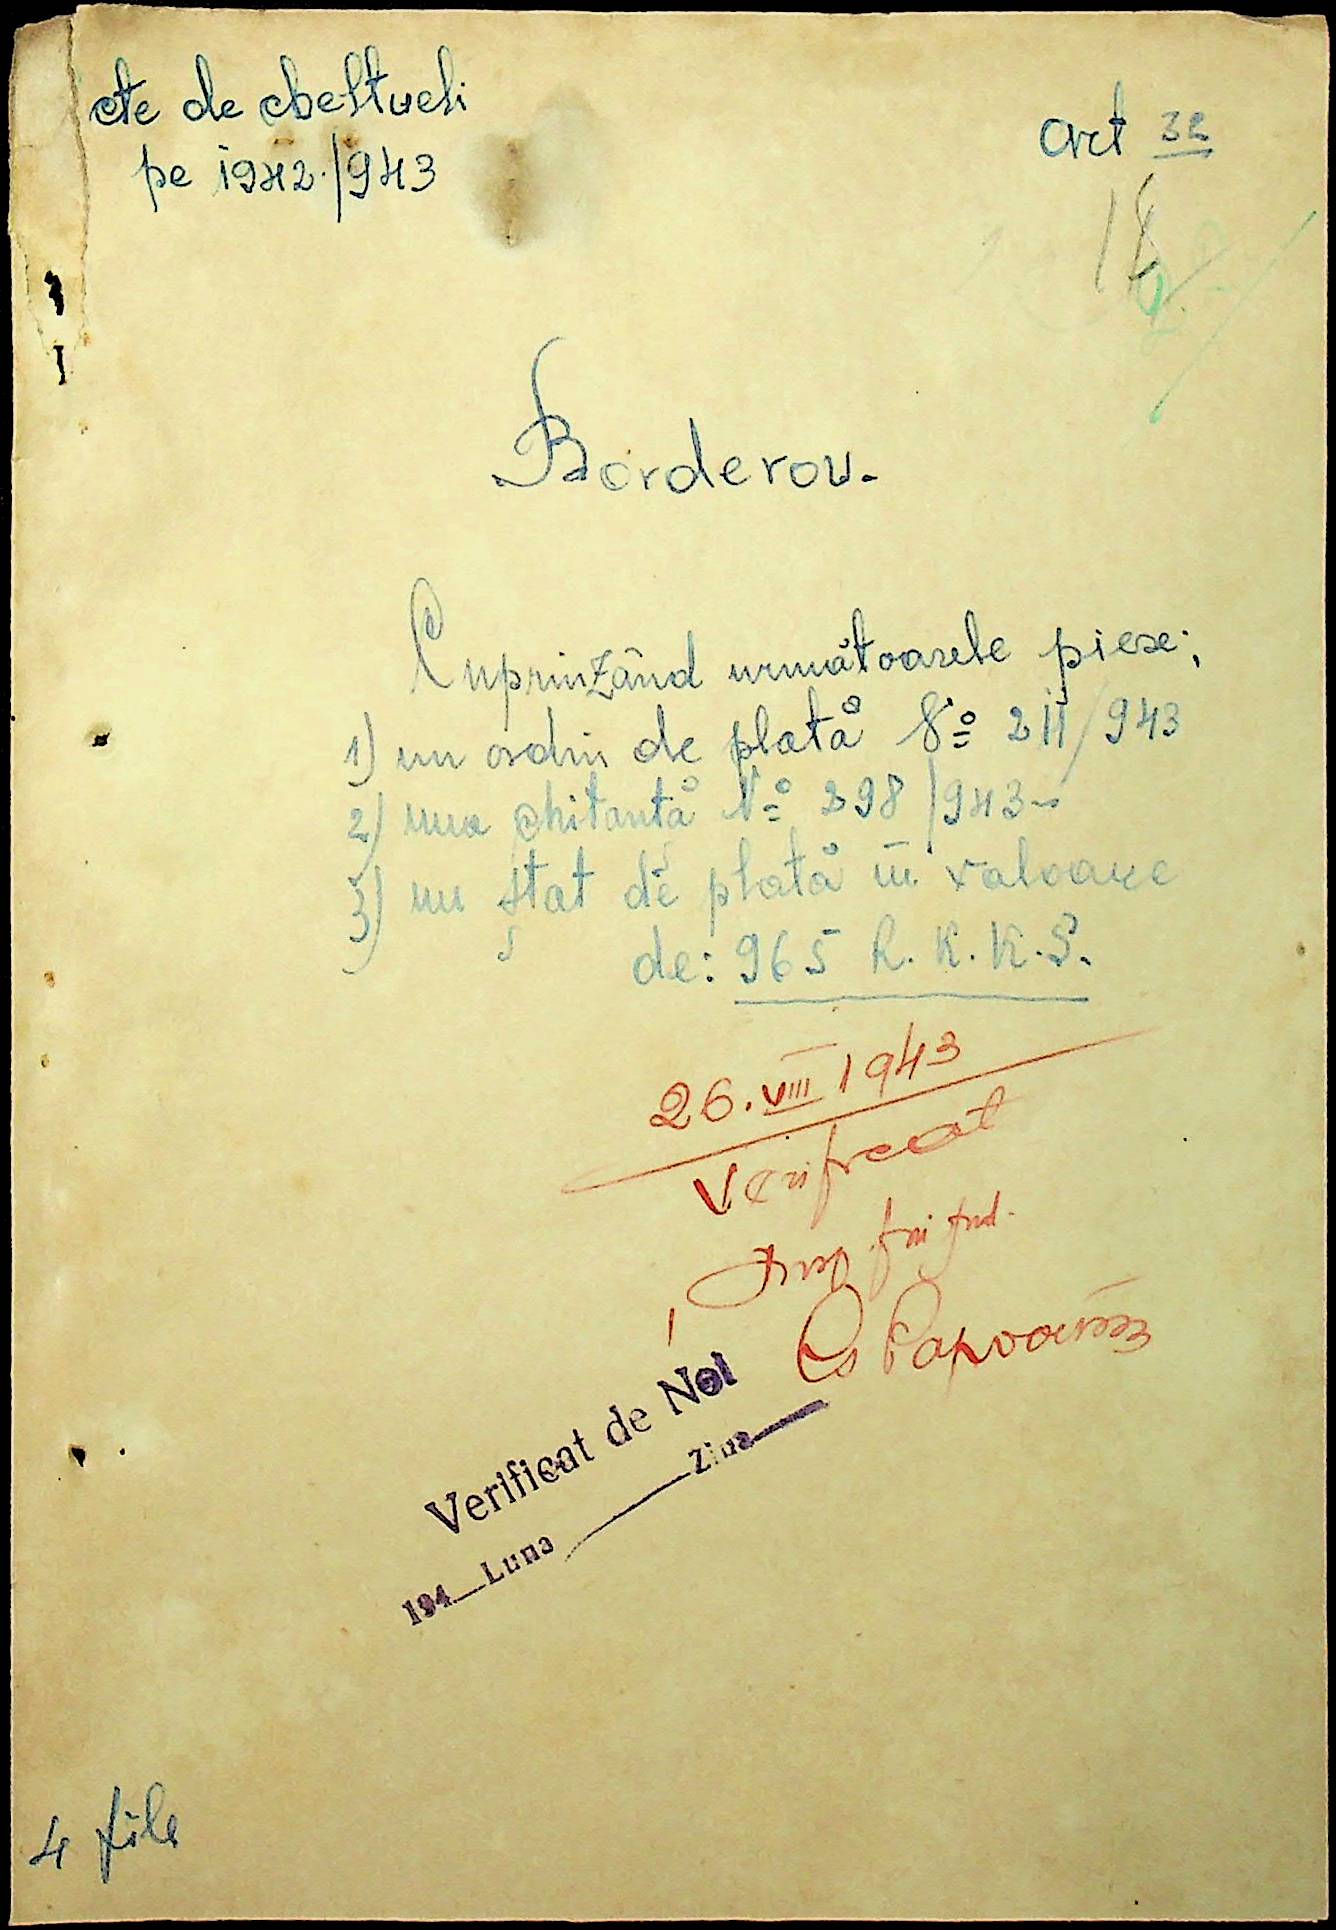 cte de cheltueli
pe 1942/943
Art 32
18
Borderou.
Cuprinzând următoarele piese;
1) un ordin de plată No 211/943
2) una chitanță No 298/943
3) un ștat de plată în valoare
de: 965 R. K. K. S.
26.VIII 1943
Verificat
Verificat de Noi
194__Luna ____ Ziua____
4 file